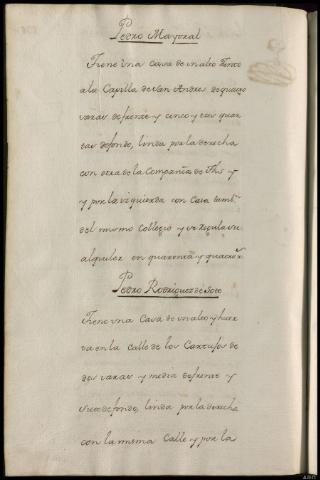 Pedro Mayoral
Tiene una Casa de un alto Junto
a la Capilla de San Andres de quatro
varas de frente y cinco y tres quar
tas de fondo, linda por la derecha
con otra de la Compañia de Jhs y
y por la izquierda con Casa tamb.ⁿ
del mismo Collegio y se regula su
alquiler en quarenta y quatro rr.ˢ
Pedro Rodriguez de Soto
Tiene una Casa de un alto y
en la Calle de los
dos varas y media de frente y
siete de fondo, linda por la derecha
con la misma Calle y por la